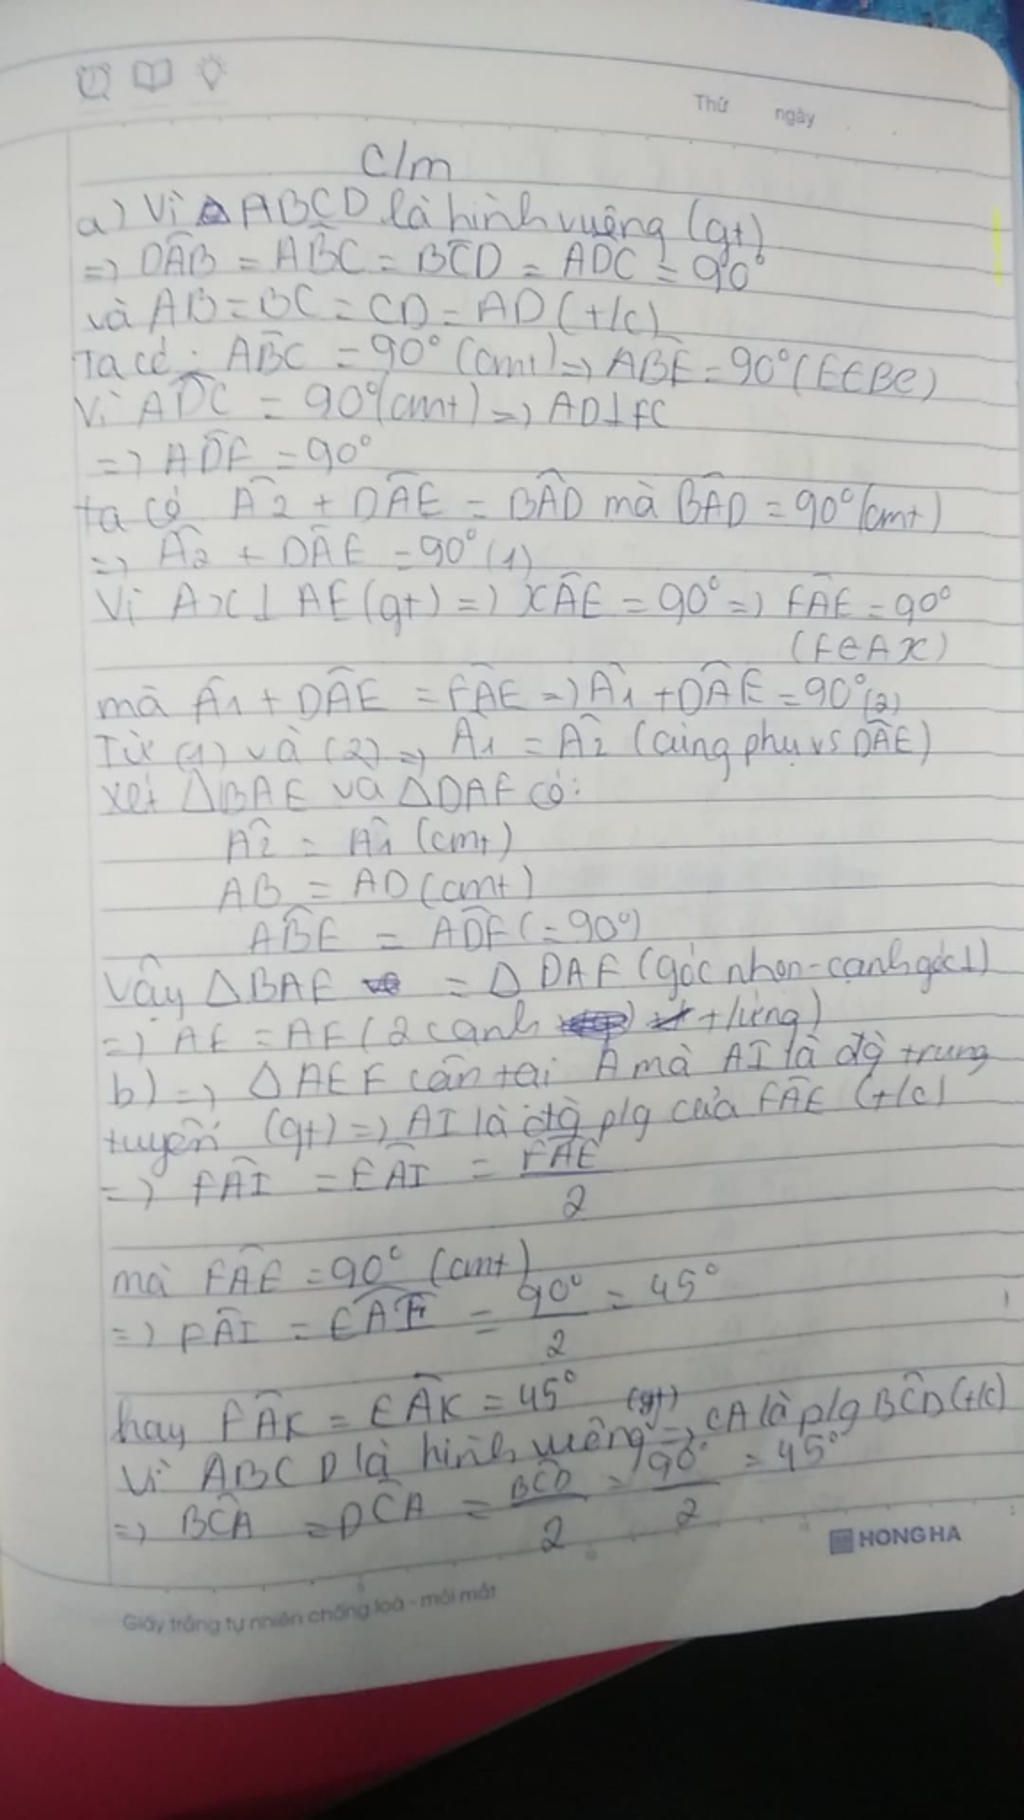 Thứ ngày
C/m
a) Vì ABCD là hình vuông (gt)
=> DÂB = AB̂C = BĈD = AD̂C = 90°
và AB = BC = CD = AD (t/c)
Ta có: AB̂C = 90° (cmt) => AB̂E = 90° (E∈BC)
Vì AD̂C = 90° (cmt) => AD⊥FC
=> AD̂F = 90°
ta có Â2 + DÂE = BÂD mà BÂD = 90° (cmt)
=> Â2 + DÂE = 90° (1)
Vì Ax⊥AE (gt) => xÂE = 90° => FÂE = 90°
(F∈Ax)
mà Â1 + DÂE = FÂE => Â1 + DÂE = 90° (2)
Từ (1) và (2) => Â1 = Â2 (cùng phụ vs DÂE)
xét ΔBAE và ΔDAF có:
Â2 = Â1 (cmt)
AB = AD (cmt)
AB̂E = AD̂F (= 90°)
Vậy ΔBAE = ΔDAF (góc nhọn - cạnh góc⊥)
=> AE = AF (2 cạnh t/ứng)
b) => ΔAEF cân tại A mà AI là đg trung
tuyến (gt) => AI là đg p/g của FÂE (t/c)
=> FÂI = EÂI = FÂE/2
mà FÂE = 90° (cmt)
=> FÂI = EÂI = 90°/2 = 45°
hay FÂK = EÂK = 45°
Vì ABCD là hình vuông (gt) => CA là p/g BĈD (t/c)
=> BĈA = DĈA = BĈD/2 = 90°/2 = 45°
HONG HA
Giấy trắng tự nhiên chống loá - mỏi mắt